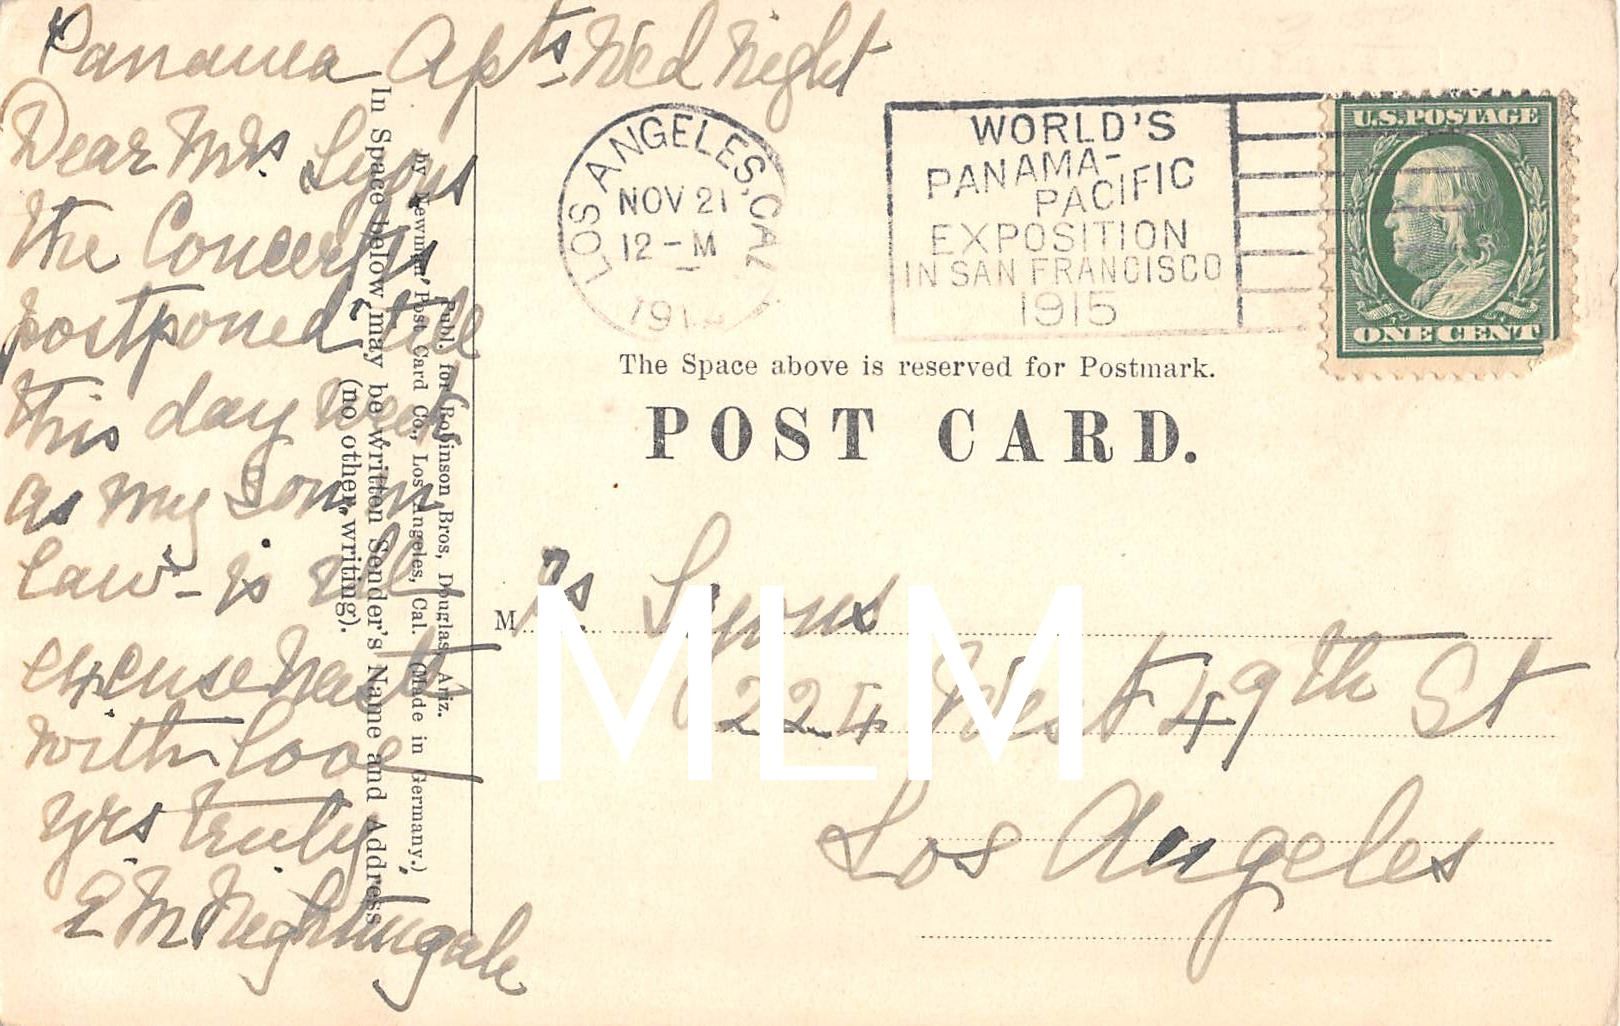 Panama Apts Wed Night
Dear Mrs. Lyons
the Concert is
postponed till
this day week
as my Son in
law - is ill
excuse haste
with love
yrs truly
E M Nightingale
In Space below may be written Sender's Name and Address
(no other writing).
Publ. for Robinson Bros, Douglas, Ariz.
by Newman Post Card Co., Los Angeles, Cal. (Made in Germany.)
LOS ANGELES, CAL
NOV 21
12 - M
WORLD'S
PANAMA-
PACIFIC
EXPOSITION
IN SAN FRANCISCO
1915
U.S. POSTAGE
ONE CENT
The Space above is reserved for Postmark.
POST CARD.
Mrs. Lyons
224 West 49th St
Los Angeles
MLM